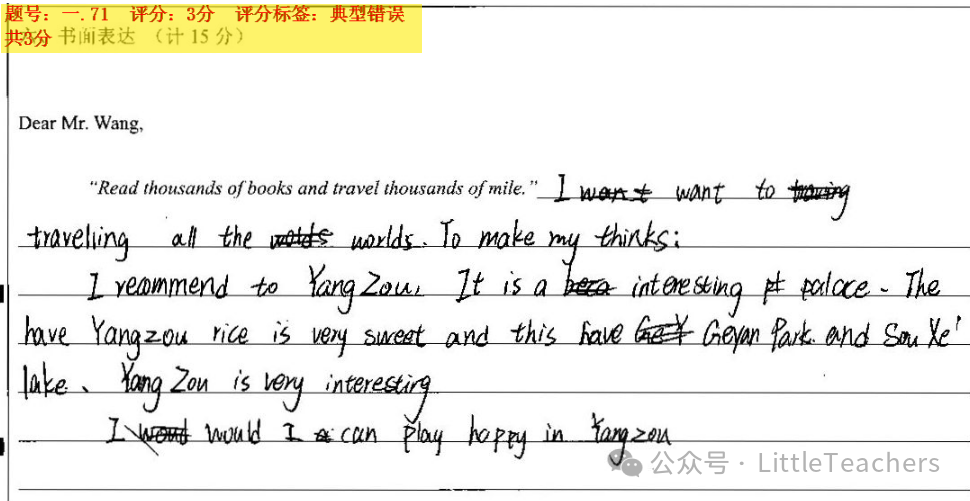 题号：一.71 评分：3分 评分标签：典型错误
共3分 书面表达 （计 15 分）
Dear Mr. Wang,
"Read thousands of books and travel thousands of mile." I want to
travelling all the worlds. To make my thinks:
I recommend to YangZou. It is a interesting palace. The
have Yangzou rice is very sweet and this have Geyan Park and Sou Xe'
lake. Yang Zou is very interesting
I would I can play happy in Yangzou
公众号 · LittleTeachers